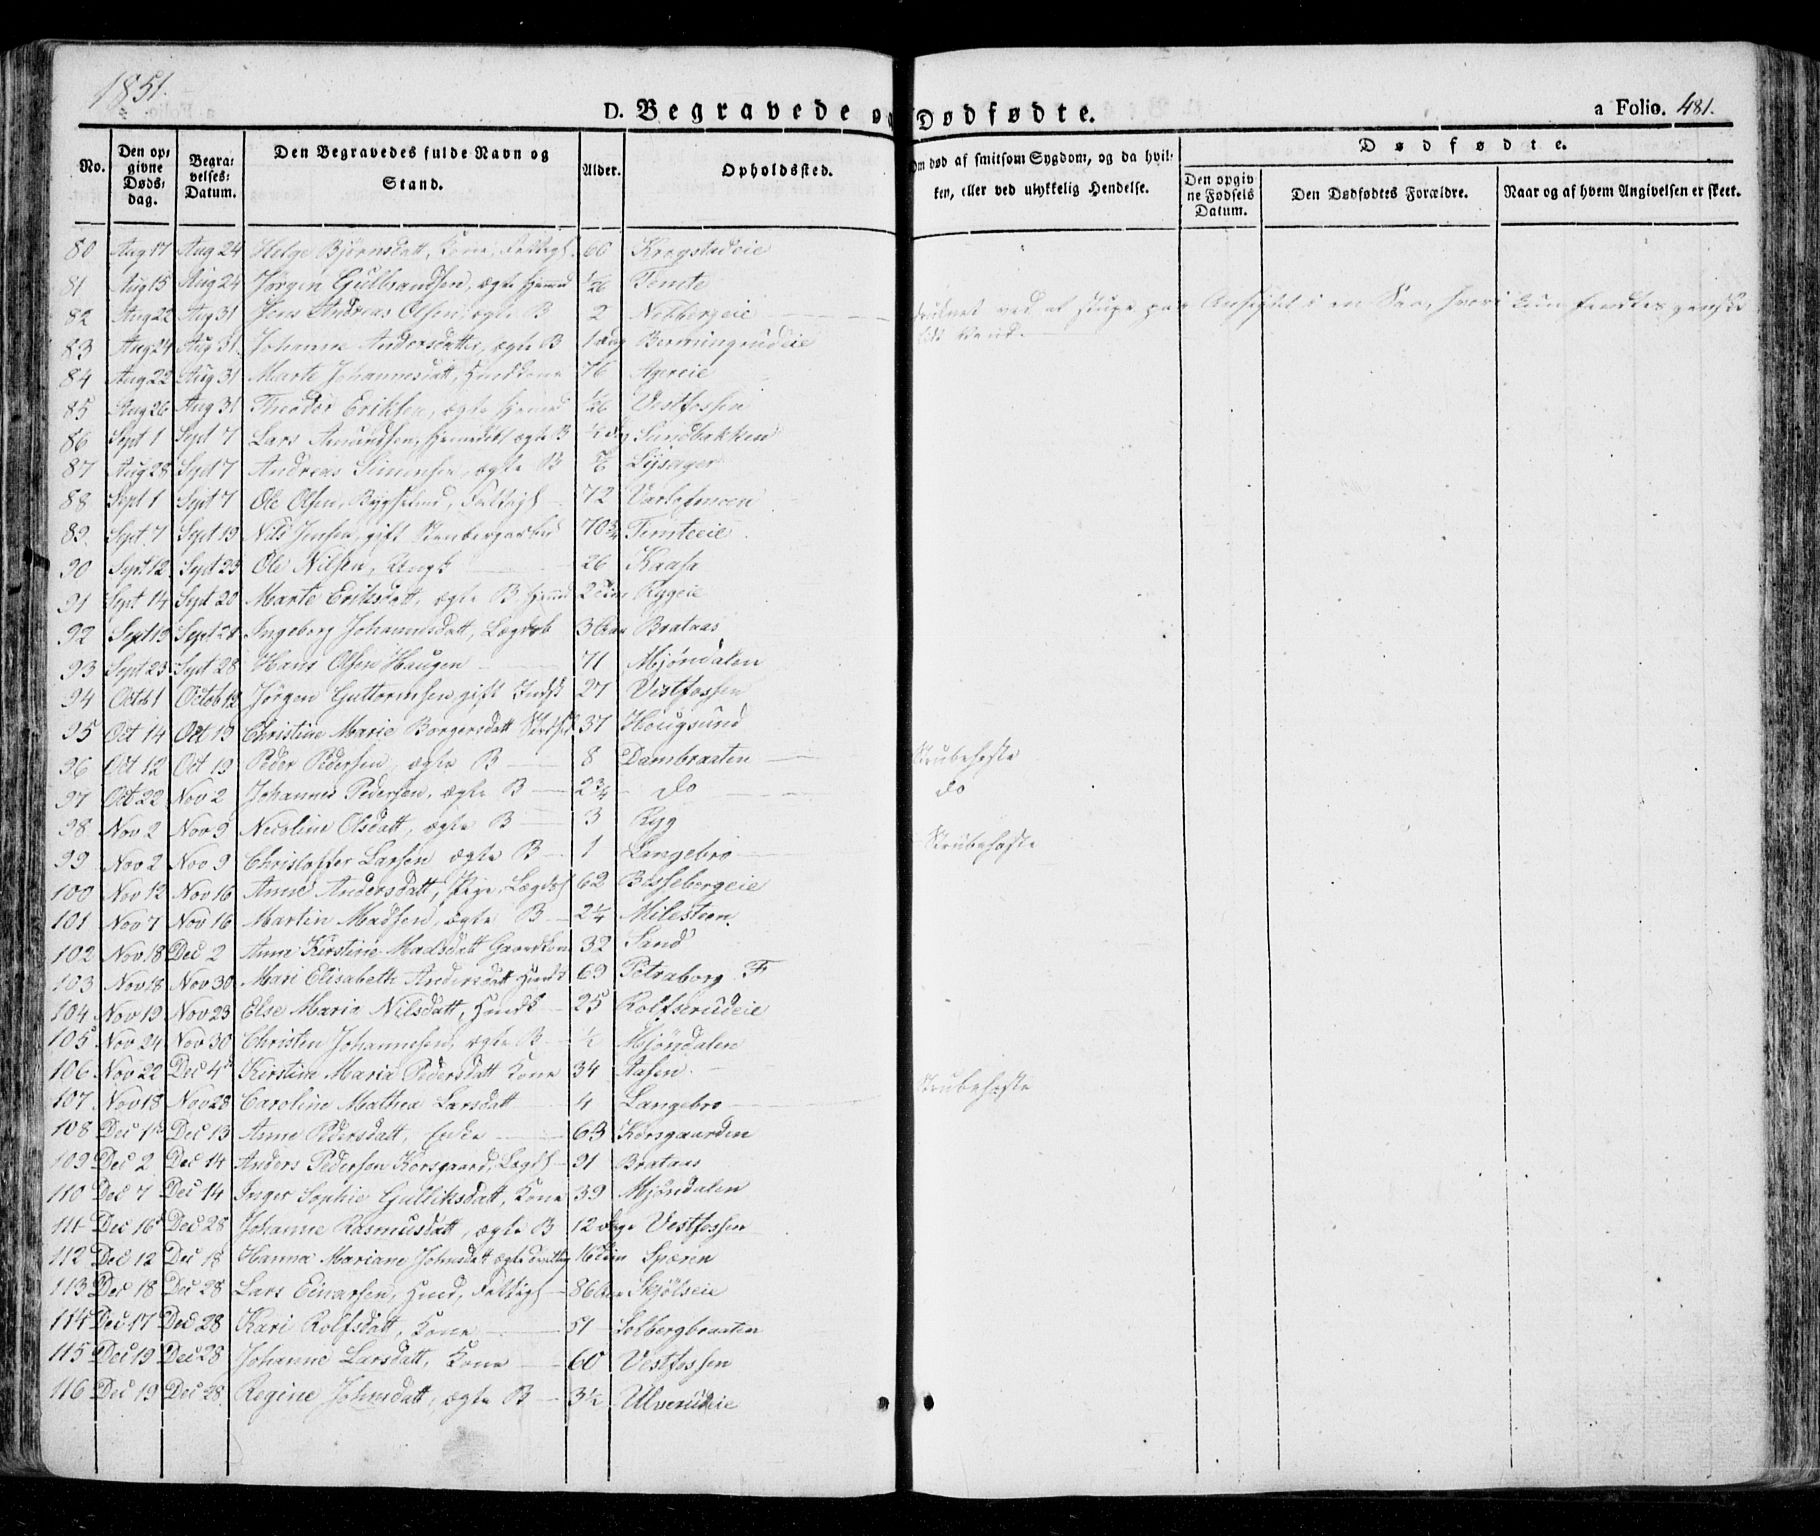 1851.
D. Begravede og Dødfødte.
a Folio. 481.
No.
Den opgivne Dødsdag.
Begravelses Datum.
Den Begravedes fulde Navn og Stand.
Alder.
Opholdssted.
Om død af smitsom Sygdom, og da hvilken, eller ved ulykkelig Hendelse.
Dødfødte.
Den opgivne Fødsels Datum.
Den Dødfødtes Forældre.
Naar og af hvem Angivelsen er skeet.
80 Aug 17 Aug 24 Helge Bjørnsdatt, Kone, Fattigl 60 Krogstadeie
81 Aug 15 Aug 24 Jørgen Gulbrandsen, ægte Hjemd 1/26 Temte
82 Aug 22 Aug 31 Jens Andreas Olsen, ægte B 2 druknet ved at
83 Aug 24 Aug 31 Johanne Andersdatter, ægte B
84 Aug 22 Aug 31 Marte Johannesdatt, Huuskone 76 Agereie
85 Aug 26 Aug 31 Theodor Eriksen, ægte Hjemd 1/26 Vestfossen
86 Sept 1 Sept 7 Lars Amundsen, Hjemdøbt ægte B Sundbakken
87 Aug 28 Sept 7 Andreas Simensen, ægte B Lysager
88 Sept 1 Sept 7 Ole Olsen, Fattigl 72
89. Sept 7 Sept 19 Nils Jensen, gift 70 Temteeie
90 Sept 12 Sept 23 Ole Nilsen, Ungk 26
91 Sept 14 Sept 20 Marte Eriksdatt, ægte B, Hjemd Rygeie
92 Sept 19 Sept 21 Ingeborg Johannesdatt, Lægdsb Brataas
93 Sept 23 Sept 28 Hans Olsen Haugen 71 Mjøndalen
94 Octb 1 Octob 12 Jørgen Guttormsen, gift Inds 27 Vestfossen
95 Oct 14 Oct 19 Christine Marie Borgersdatt 37 Hougsund
96 Oct 12 Oct 19 Peder Pedersen, ægte B 8 Dambraaten Strubehoste
97 Oct 22 Nov 2 Johannes Pedersen, ægte B 2 3/4 do do
98 Nov 2 Nov 9 Nicoline Olsdatt, ægte B 3 Ryg
99 Nov 2 Nov 9 Christoffer Larsen ægte B 1 Langebro Strubehoste
100 Nov 12 Nov 16 Anne Andersdatt, Pige, Lægdsl 62 Basebergeie
101 Nov 7 Nov 16 Martin Madsen, ægte B 2 1/4 Milesteen
102 Nov 18 Dec 2 Anne Kirstine Madsdatt Gaardkone 32 Sand
103 Nov 18 Nov 30 Mari Elisabeth Andersdatt Huusk 69 Petraborg F
104 Nov 19 Nov 23 Else Maria Nilsdatt, Huusk 25 Rolfsrudeie
105 Nov 24 Nov 30 Christen Johannesen, ægte B 1/2 Mjøndalen
106 Nov 22 Dec 4 Kirstine Maria Pedersdatt Kone 34 Aasen
107 Nov 18 Nov 28 Caroline Mathea Larsdatt 4 Langebro Strubehoste
108 Dec 1 Dec 13 Anne Pedersdatt, Enke 63 Korsgaarden
109 Dec 2 Dec 14 Anders Pedersen Korsgaard, Lægdsl 91 Brataas
110 Dec 7 Dec 14 Inger Sophie Gulliksdatt, Kone 39 Mjøndalen
111 Dec 16 Dec 28 Johanne Rasmusdatt, ægte B 12 dage Vestfossen
112 Dec 12 Dec 18 Hanna Mariane Johnsdatt ægte 16 Spæren
113 Dec 18 Dec 28 Lars Einarsen, Huusd, Fattigl 86 Skjølseie
114 Dec 17 Dec 28 Kari Rolfsdatt, Kone 51 Solbergbraaten
115 Dec 19 Dec 28 Johanne Larsdatt, Kone 60 Vestfossen
116 Dec 19 Dec 28 Regine Johnsdatt, ægte B 3 1/2 Ulverudeie